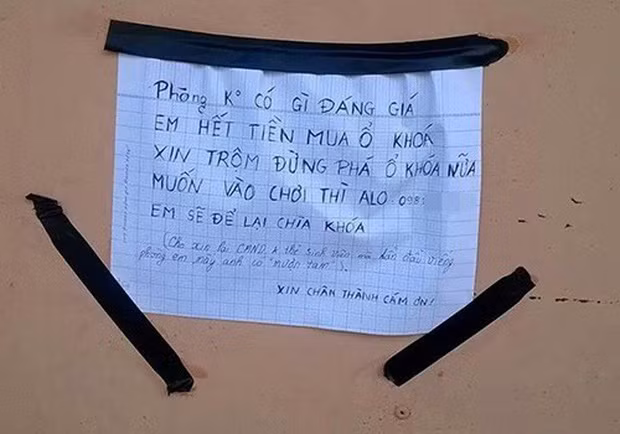 Phòng K° CÓ GÌ ĐÁNG GIÁ
EM HẾT TIỀN MUA Ổ KHOÁ
XIN TRỘM ĐỪNG PHÁ Ổ KHÓA NỮA
MUỐN VÀO CHƠI THÌ ALO 098
EM SẼ ĐỂ LẠI CHÌA KHÓA
(Cho xin lại CMND & thẻ sinh viên mà lần đầu viếng
phòng em mấy anh có "mượn tạm").
XIN CHÂN THÀNH CÁM ƠN!